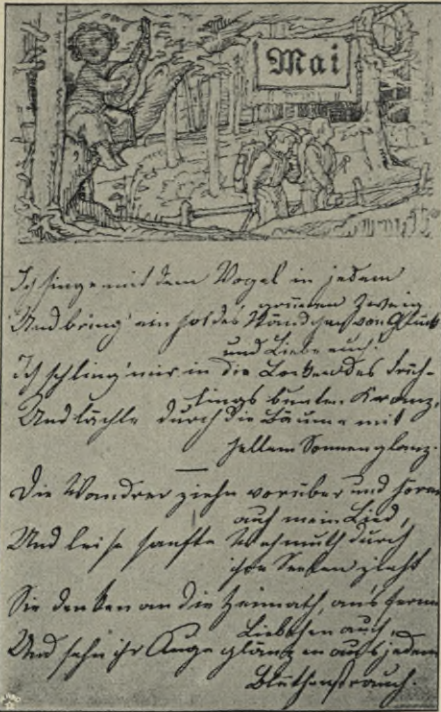 Mai
Ich singe mit dem Vogel in jedem
grünen Zweig
Und bring' ein holdes Ständchen von Glück
und Liebe euch!
Ich schling' mir in die Locken des Früh-
lings bunten Kranz,
Und lächle durch die Bäume mit
hellem Sonnenglanz.
Die Wandrer ziehn vorüber und horen
auf mein Lied,
Und leise sanfte Wehmuth durch
ihre Seelen zieht
Sie denken an die Heimath, an's ferne
Liebchen auch,
Und sehn ihr Auge glänzen aus jedem
Blüthenstrauch.